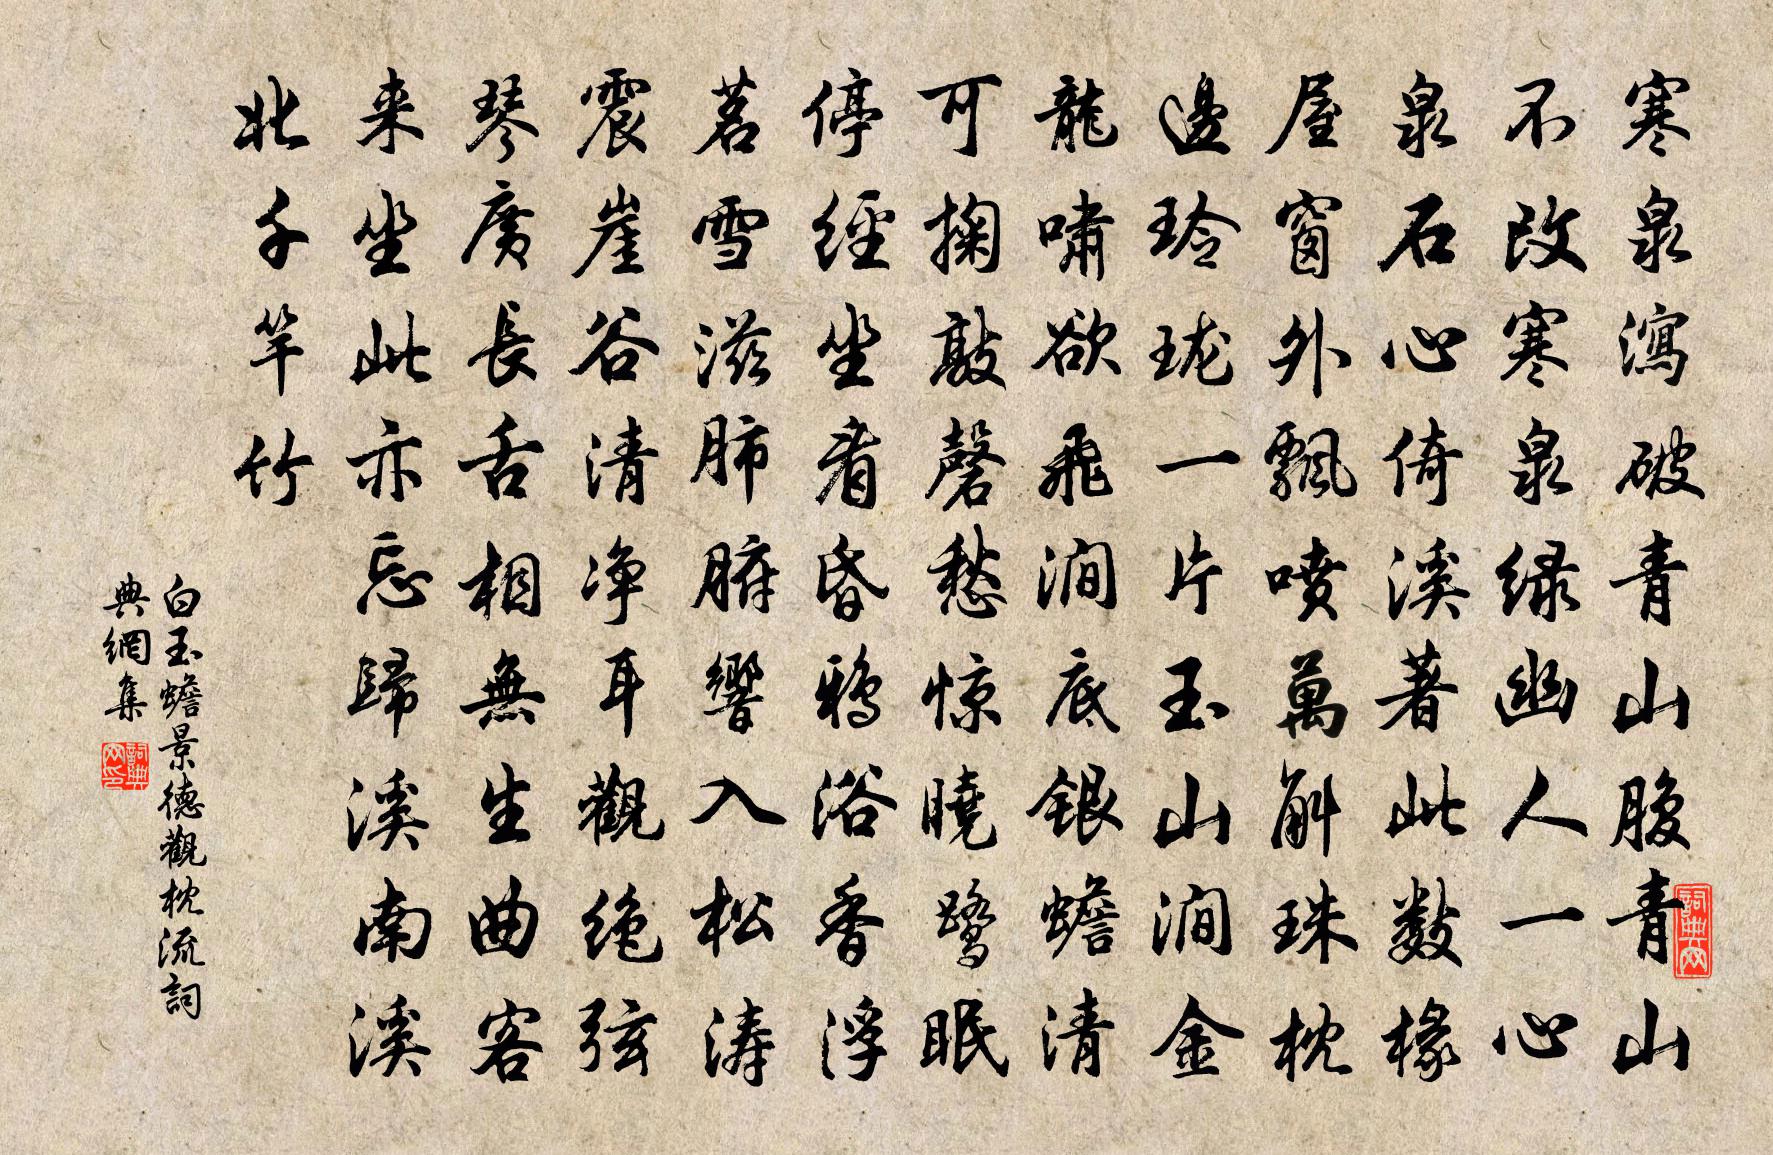 寒泉瀉破青山腹青山
不改寒泉绿幽人一心
泉石心倚溪著此数椽
屋窗外飘喷萬斛珠枕
邊玲珑一片玉山澗金
龍嘯欲飛澗底銀蟾清
可掬敲磬愁惊曉鹭眠
停經坐看昏鸦浴香浮
茗雪滋肺腑響入松涛
震崖谷清净耳觀绝弦
琴廣長舌相無生曲客
来坐此亦忘歸溪南溪
北千竿竹
白玉蟾景德觀枕流詞
典網集
詞典网印
詞典网